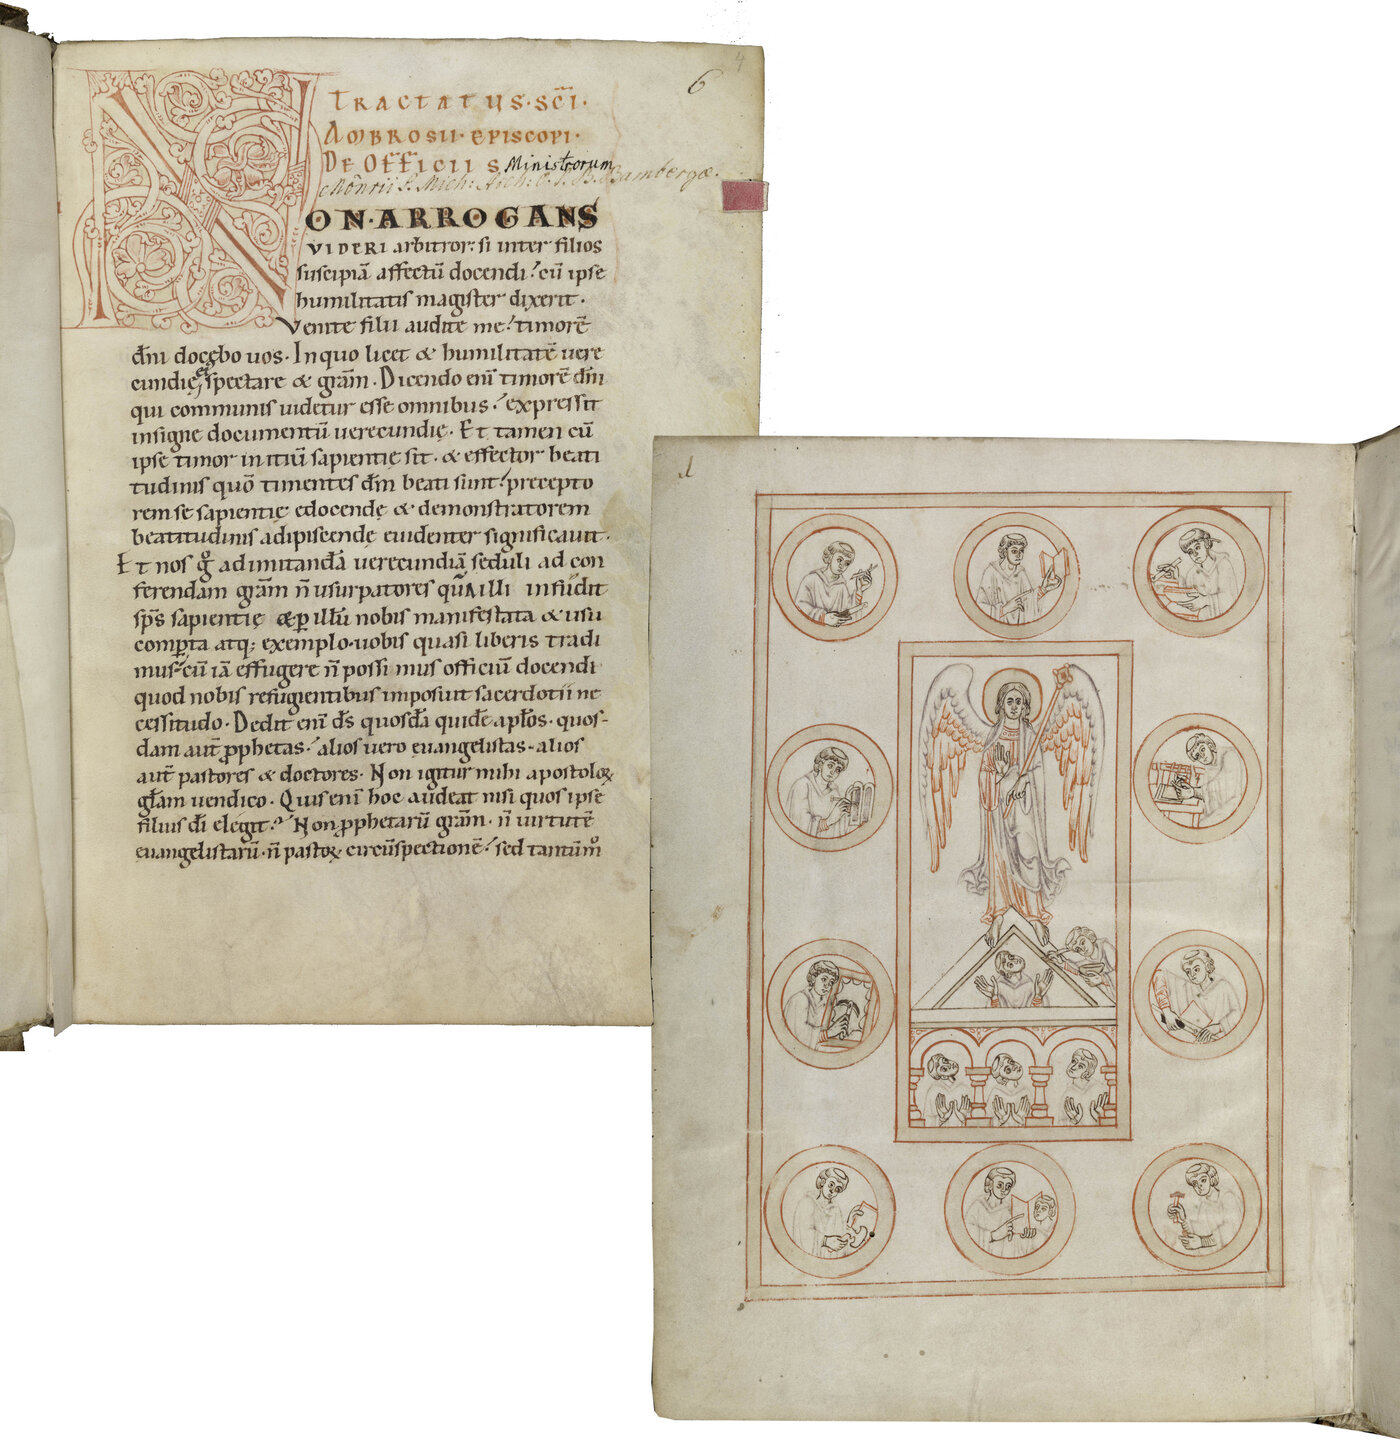 4
6
TRACTATUS·SC̄I·
AMBROSII·EPISCOPI·
DE OFFICIIS Ministrorum
Mōnrii S. Mich: Arch: O. S. B. Bambergæ.
NON·ARROGANS
VIDERI arbitror·si inter filios
suscipiā affectū docendi? cū ipse
humilitatis magister dixerit·
Venite filii audite me? timorē
dn̄i docebo uos· In quo licet & humilitatē uere
cundię spectare & gr̄am· Dicendo enī timorē dn̄i
qui communis uidetur esse omnibus? expressit
insigne documentū uerecundię· Et tamen cū
ipse timor initiū sapientię sit· & effector beati
tudinis quō timentes dn̄m beati sunt? precepto
rem se sapientię edocendę & demonstratorem
beatitudinis adipiscendę euidenter significauit·
Et nos g̊ ad imitandā uerecundiā seduli ad con
ferendam gr̄am n̄ usurpatores quę illi infudit
sp̄s sapientię & ꝑ illū nobis manifestata & usu
comꝑta atq; exemplo·uobis quasi liberis tradi
mus? cū iā effugere n̄ possimus officiū docendi
quod nobis refugientibus imposuit sacerdotii ne
cessitudo· Dedit enī d̄s quosdā quidē apl̄os· quos-
dam aut̄ ꝓphetas·alios uero euangelistas·alios
aut̄ pastores & doctores· Non igitur mihi apostoloꝝ
gl̄am uendico· Quis enī hoc audeat nisi quos ipse
filius dī elegit? Non ꝓphetarū gr̄am· n̄ uirtutē
euangelistarū·n̄ pastoꝝ circūspectionē? sed tantūm̊
1